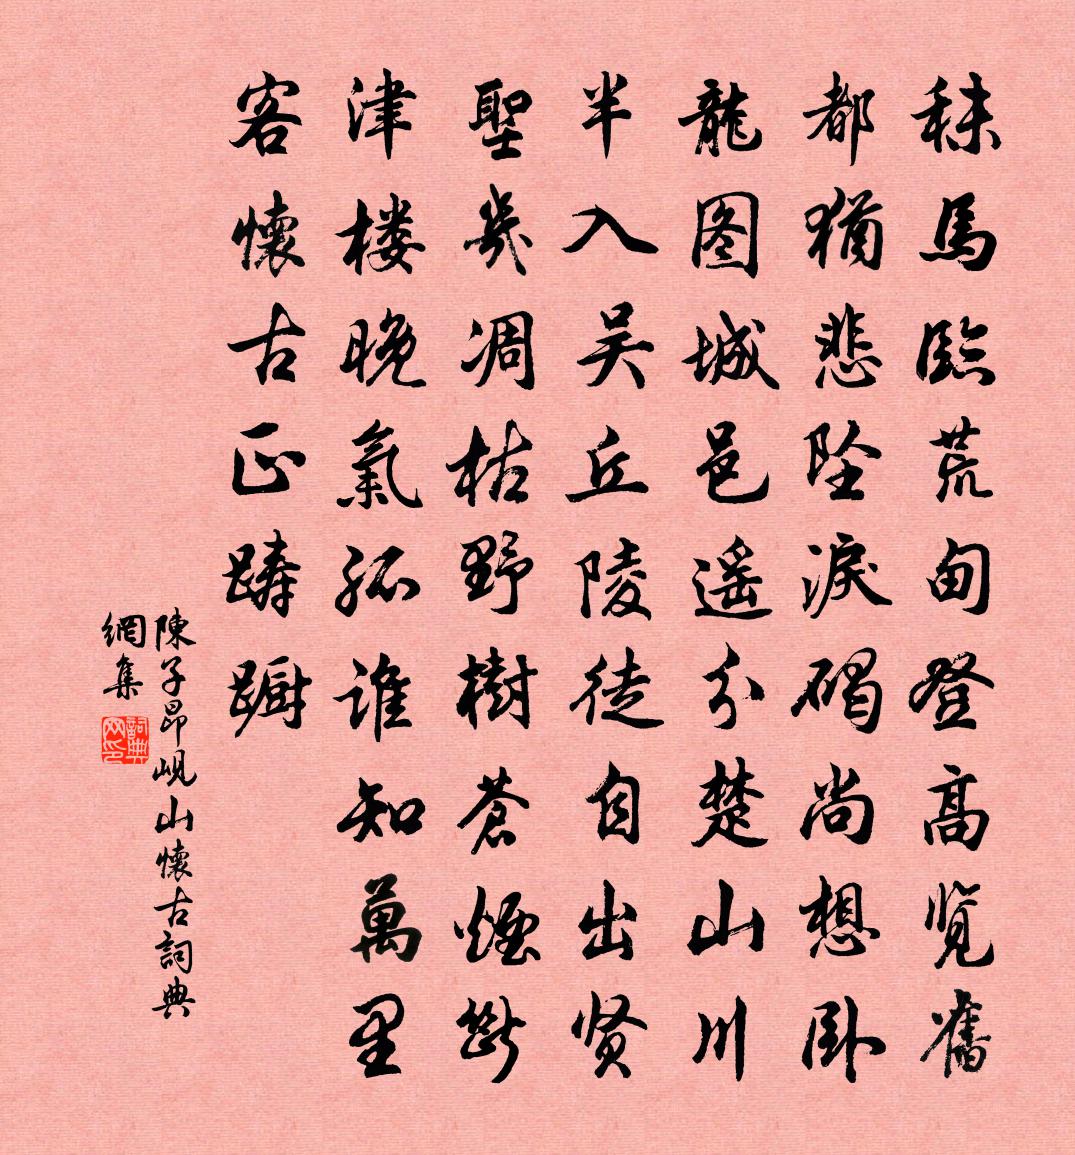 秣馬臨荒甸登高览舊
都猶悲墜淚碣尚想卧
龍图城邑遥分楚山川
半入吴丘陵徒自出贤
聖幾凋枯野樹蒼煙斷
津楼晚氣孤誰知萬里
客懷古正躊躕
陳子昂峴山懷古詞典
網集
詞典网印